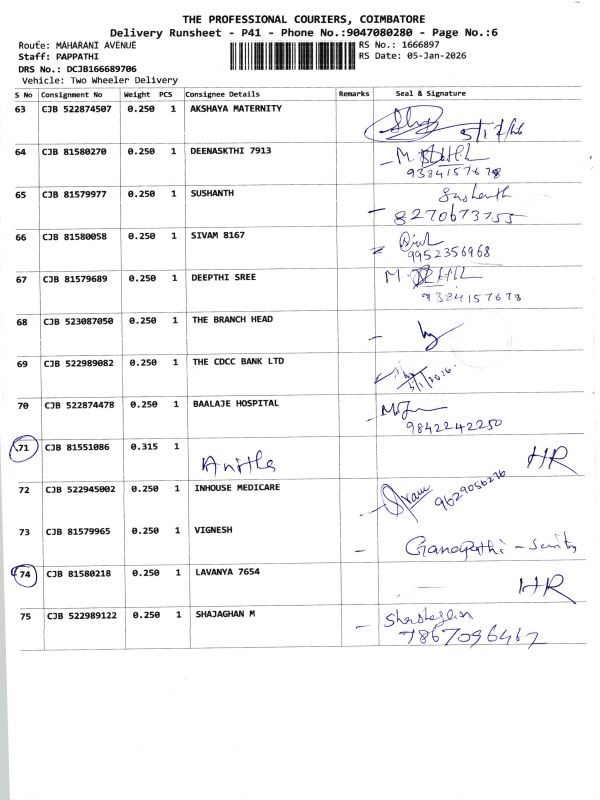 THE PROFESSIONAL COURIERS, COIMBATORE
Delivery Runsheet - P41 - Phone No.:9047080280 - Page No.:6
Route: MAHARANI AVENUE RS No.: 1666897
Staff: PAPPATHI RS Date: 05-Jan-2026
DRS No.: DCJB166689706
Vehicle: Two Wheeler Delivery
S No Consignment No Weight PCS Consignee Details Remarks Seal & Signature
63 CJB 522874507 0.250 1 AKSHAYA MATERNITY
64 CJB 81580270 0.250 1 DEENASKTHI 7913
9384157678
65 CJB 81579977 0.250 1 SUSHANTH Sushanth
8270673755
66 CJB 81580058 0.250 1 SIVAM 8167
9952356968
67 CJB 81579689 0.250 1 DEEPTHI SREE
9384157678
68 CJB 523087050 0.250 1 THE BRANCH HEAD
69 CJB 522989082 0.250 1 THE CDCC BANK LTD
5/1/2026
70 CJB 522874478 0.250 1 BAALAJE HOSPITAL
9842242250
71 CJB 81551086 0.315 1 HR
Anitha
72 CJB 522945002 0.250 1 INHOUSE MEDICARE 9629056276
73 CJB 81579965 0.250 1 VIGNESH
Ganapathi -
74 CJB 81580218 0.250 1 LAVANYA 7654 HR
75 CJB 522989122 0.250 1 SHAJAGHAN M
7867096467